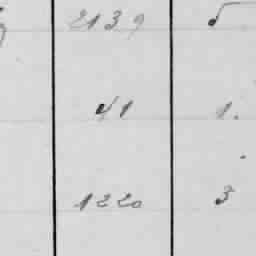 2139
41 1.
1220 3